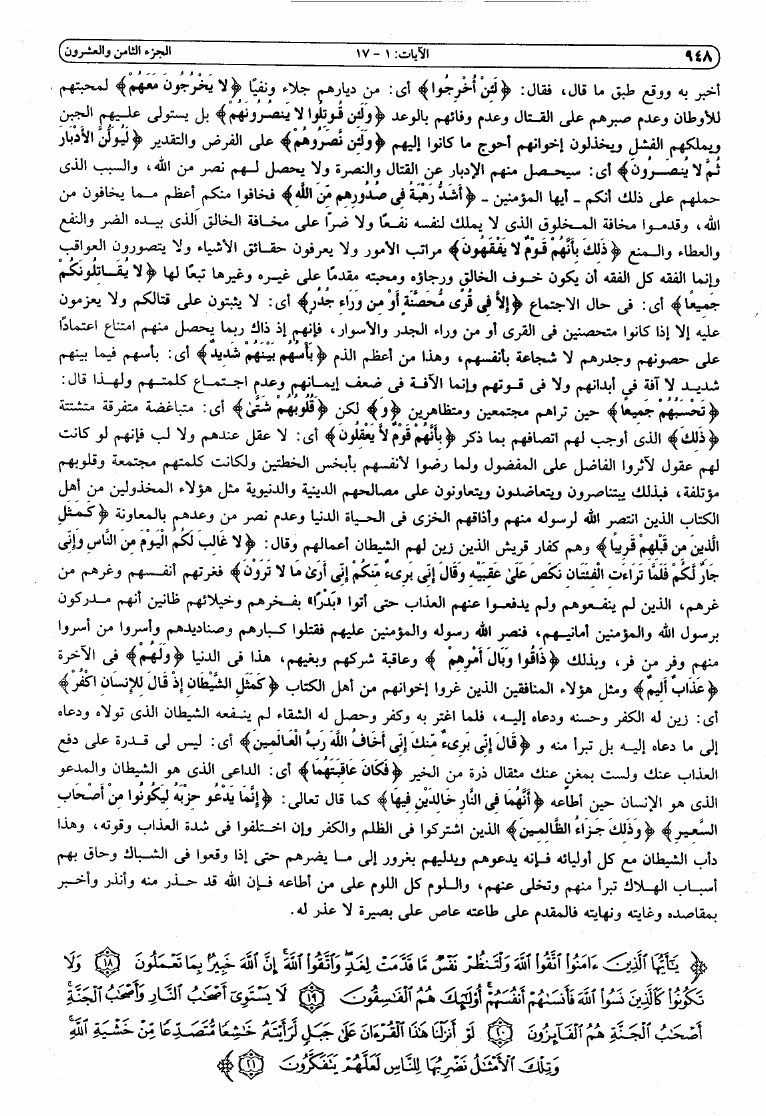 ٩٤٨ الآيات: ١ - ١٧ الجزء الثامن والعشرون
أخبر به ووقع طبق ما قال، فقال: ﴿لَئِنْ أُخْرِجُوا﴾ أى: من ديارهم جلاء ونفيًا ﴿لا يَخْرُجُونَ مَعَهُمْ﴾ لمحبتهم
للأوطان وعدم صبرهم على القتال وعدم وفائهم بالوعد ﴿وَلَئِن قُوتِلُوا لا يَنصُرُونَهُمْ﴾ بل يستولى عليهم الجبن
ويملكهم الفشل ويخذلون إخوانهم أحوج ما كانوا إليهم ﴿وَلَئِن نَّصَرُوهُمْ﴾ على الفرض والتقدير ﴿لَيُوَلُّنَّ الأَدْبَارَ
ثُمَّ لا يُنصَرُونَ﴾ أى: سيحصل منهم الإدبار عن القتال والنصرة ولا يحصل لهم نصر من الله، والسبب الذى
حملهم على ذلك أنكم ـ أيها المؤمنين ـ ﴿أَشَدُّ رَهْبَةً فِى صُدُورِهِم مِّنَ اللَّهِ﴾ فخافوا منكم أعظم مما يخافون من
الله، وقدموا مخافة المخلوق الذى لا يملك لنفسه نفعًا ولا ضرًا على مخافة الخالق الذى بيده الضر والنفع
والعطاء والمنع ﴿ذَلِكَ بِأَنَّهُمْ قَوْمٌ لا يَفْقَهُونَ﴾ مراتب الأمور ولا يعرفون حقائق الأشياء ولا يتصورون العواقب
وإنما الفقه كل الفقه أن يكون خوف الخالق ورجاؤه ومحبته مقدمًا على غيره وغيرها تبعًا لها ﴿لا يُقَاتِلُونَكُمْ
جَمِيعًا﴾ أى: فى حال الاجتماع ﴿إِلاَّ فِى قُرًى مُّحَصَّنَةٍ أَوْ مِن وَرَاءِ جُدُرٍ﴾ أى: لا يثبتون على قتالكم ولا يعزمون
عليه إلا إذا كانوا متحصنين فى القرى أو من وراء الجدر والأسوار، فإنهم إذ ذاك ربما يحصل منهم امتناع اعتمادًا
على حصونهم وجدرهم لا شجاعة بأنفسهم، وهذا من أعظم الذم ﴿بَأْسُهُم بَيْنَهُمْ شَدِيدٌ﴾ أى: بأسهم فيما بينهم
شديد لا آفة فى أبدانهم ولا فى قوتهم وإنما الآفة فى ضعف إيمانهم وعدم اجتماع كلمتهم ولهذا قال:
﴿تَحْسَبُهُمْ جَمِيعًا﴾ حين تراهم مجتمعين ومتظاهرين ﴿وَ﴾ لكن ﴿قُلُوبُهُمْ شَتَّى﴾ أى: متباغضة متفرقة متشتتة
﴿ذَلِكَ﴾ الذى أوجب لهم اتصافهم بما ذكر ﴿بِأَنَّهُمْ قَوْمٌ لاَّ يَعْقِلُونَ﴾ أى: لا عقل عندهم ولا لب فإنهم لو كانت
لهم عقول لآثروا الفاضل على المفضول ولما رضوا لأنفسهم بأبخس الخطتين ولكانت كلمتهم مجتمعة وقلوبهم
مؤتلفة، فبذلك يتناصرون ويتعاضدون ويتعاونون على مصالحهم الدينية والدنيوية مثل هؤلاء المخذولين من أهل
الكتاب الذين انتصر الله لرسوله منهم وأذاقهم الخزى فى الحياة الدنيا وعدم نصر من وعدهم بالمعاونة ﴿كَمَثَلِ
الَّذِينَ مِن قَبْلِهِمْ قَرِيبًا﴾ وهم كفار قريش الذين زين لهم الشيطان أعمالهم وقال: ﴿لا غَالِبَ لَكُمُ الْيَوْمَ مِنَ النَّاسِ وَإِنِّى
جَارٌ لَّكُمْ فَلَمَّا تَرَاءَتِ الْفِئَتَانِ نَكَصَ عَلَىٰ عَقِبَيْهِ وَقَالَ إِنِّى بَرِىءٌ مِّنكُمْ إِنِّى أَرَىٰ مَا لا تَرَوْنَ﴾ فغرتهم أنفسهم وغرهم من
غرهم، الذين لم ينفعوهم ولم يدفعوا عنهم العذاب حتى أتوا «بَدْرًا» بفخرهم وخيلائهم ظانين أنهم مدركون
برسول الله والمؤمنين أمانيهم، فنصر الله رسوله والمؤمنين عليهم فقتلوا كبارهم وصناديدهم وأسروا من أسروا
منهم وفر من فر، وبذلك ﴿ذَاقُوا وَبَالَ أَمْرِهِمْ﴾ وعاقبة شركهم وبغيهم، هذا فى الدنيا ﴿وَلَهُمْ﴾ فى الآخرة
﴿عَذَابٌ أَلِيمٌ﴾ ومثل هؤلاء المنافقين الذين غروا إخوانهم من أهل الكتاب ﴿كَمَثَلِ الشَّيْطَانِ إِذْ قَالَ لِلإِنسَانِ اكْفُرْ﴾
أى: زين له الكفر وحسنه ودعاه إليه، فلما اغتر به وكفر وحصل له الشقاء لم ينفعه الشيطان الذى تولاه ودعاه
إلى ما دعاه إليه بل تبرأ منه و ﴿قَالَ إِنِّى بَرِىءٌ مِّنكَ إِنِّى أَخَافُ اللَّهَ رَبَّ الْعَالَمِينَ﴾ أى: ليس لى قدرة على دفع
العذاب عنك ولست بمغن عنك مثقال ذرة من الخير ﴿فَكَانَ عَاقِبَتَهُمَا﴾ أى: الداعى الذى هو الشيطان والمدعو
الذى هو الإنسان حين أطاعه ﴿أَنَّهُمَا فِى النَّارِ خَالِدَيْنِ فِيهَا﴾ كما قال تعالى: ﴿إِنَّمَا يَدْعُو حِزْبَهُ لِيَكُونُوا مِنْ أَصْحَابِ
السَّعِيرِ﴾ ﴿وَذَلِكَ جَزَاءُ الظَّالِمِينَ﴾ الذين اشتركوا فى الظلم والكفر وإن اختلفوا فى شدة العذاب وقوته، وهذا
دأب الشيطان مع كل أوليائه فإنه يدعوهم ويدليهم بغرور إلى ما يضرهم حتى إذا وقعوا فى الشباك وحاق بهم
أسباب الهلاك تبرأ منهم وتخلى عنهم، واللوم كل اللوم على من أطاعه فإن الله قد حذر منه وأنذر وأخبر
بمقاصده وغايته ونهايته فالمقدم على طاعته عاص على بصيرة لا عذر له.
﴿يَٰٓأَيُّهَا ٱلَّذِينَ ءَامَنُوا۟ ٱتَّقُوا۟ ٱللَّهَ وَلْتَنظُرْ نَفْسٌ مَّا قَدَّمَتْ لِغَدٍ وَٱتَّقُوا۟ ٱللَّهَ إِنَّ ٱللَّهَ خَبِيرٌۢ بِمَا تَعْمَلُونَ ١٨ وَلَا
تَكُونُوا۟ كَٱلَّذِينَ نَسُوا۟ ٱللَّهَ فَأَنسَىٰهُمْ أَنفُسَهُمْ أُو۟لَٰٓئِكَ هُمُ ٱلْفَٰسِقُونَ ١٩ لَا يَسْتَوِىٓ أَصْحَٰبُ ٱلنَّارِ وَأَصْحَٰبُ ٱلْجَنَّةِ
أَصْحَٰبُ ٱلْجَنَّةِ هُمُ ٱلْفَآئِزُونَ ٢٠ لَوْ أَنزَلْنَا هَٰذَا ٱلْقُرْءَانَ عَلَىٰ جَبَلٍ لَّرَأَيْتَهُۥ خَٰشِعًا مُّتَصَدِّعًا مِّنْ خَشْيَةِ ٱللَّهِ
وَتِلْكَ ٱلْأَمْثَٰلُ نَضْرِبُهَا لِلنَّاسِ لَعَلَّهُمْ يَتَفَكَّرُونَ ٢١﴾